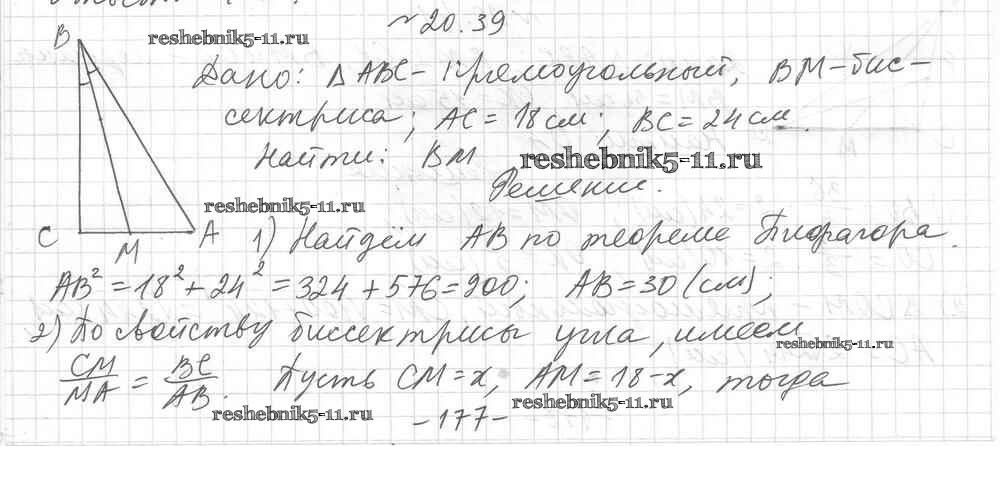 № 20.39
B
reshebnik5-11.ru
Дано: Δ ABC - прямоугольный, BM - бис-
сектриса; AC = 18 см; BC = 24 см.
Найти: BM
reshebnik5-11.ru
Решение.
reshebnik5-11.ru
C
M
A
1) Найдём AB по теореме Пифагора.
AB² = 18² + 24² = 324 + 576 = 900; AB = 30 (см);
2) По свойству биссектрисы угла, имеем
reshebnik5-11.ru
CM/MA = BC/AB. Пусть CM = x, AM = 18 - x, тогда
reshebnik5-11.ru
reshebnik5-11.ru
- 177 -